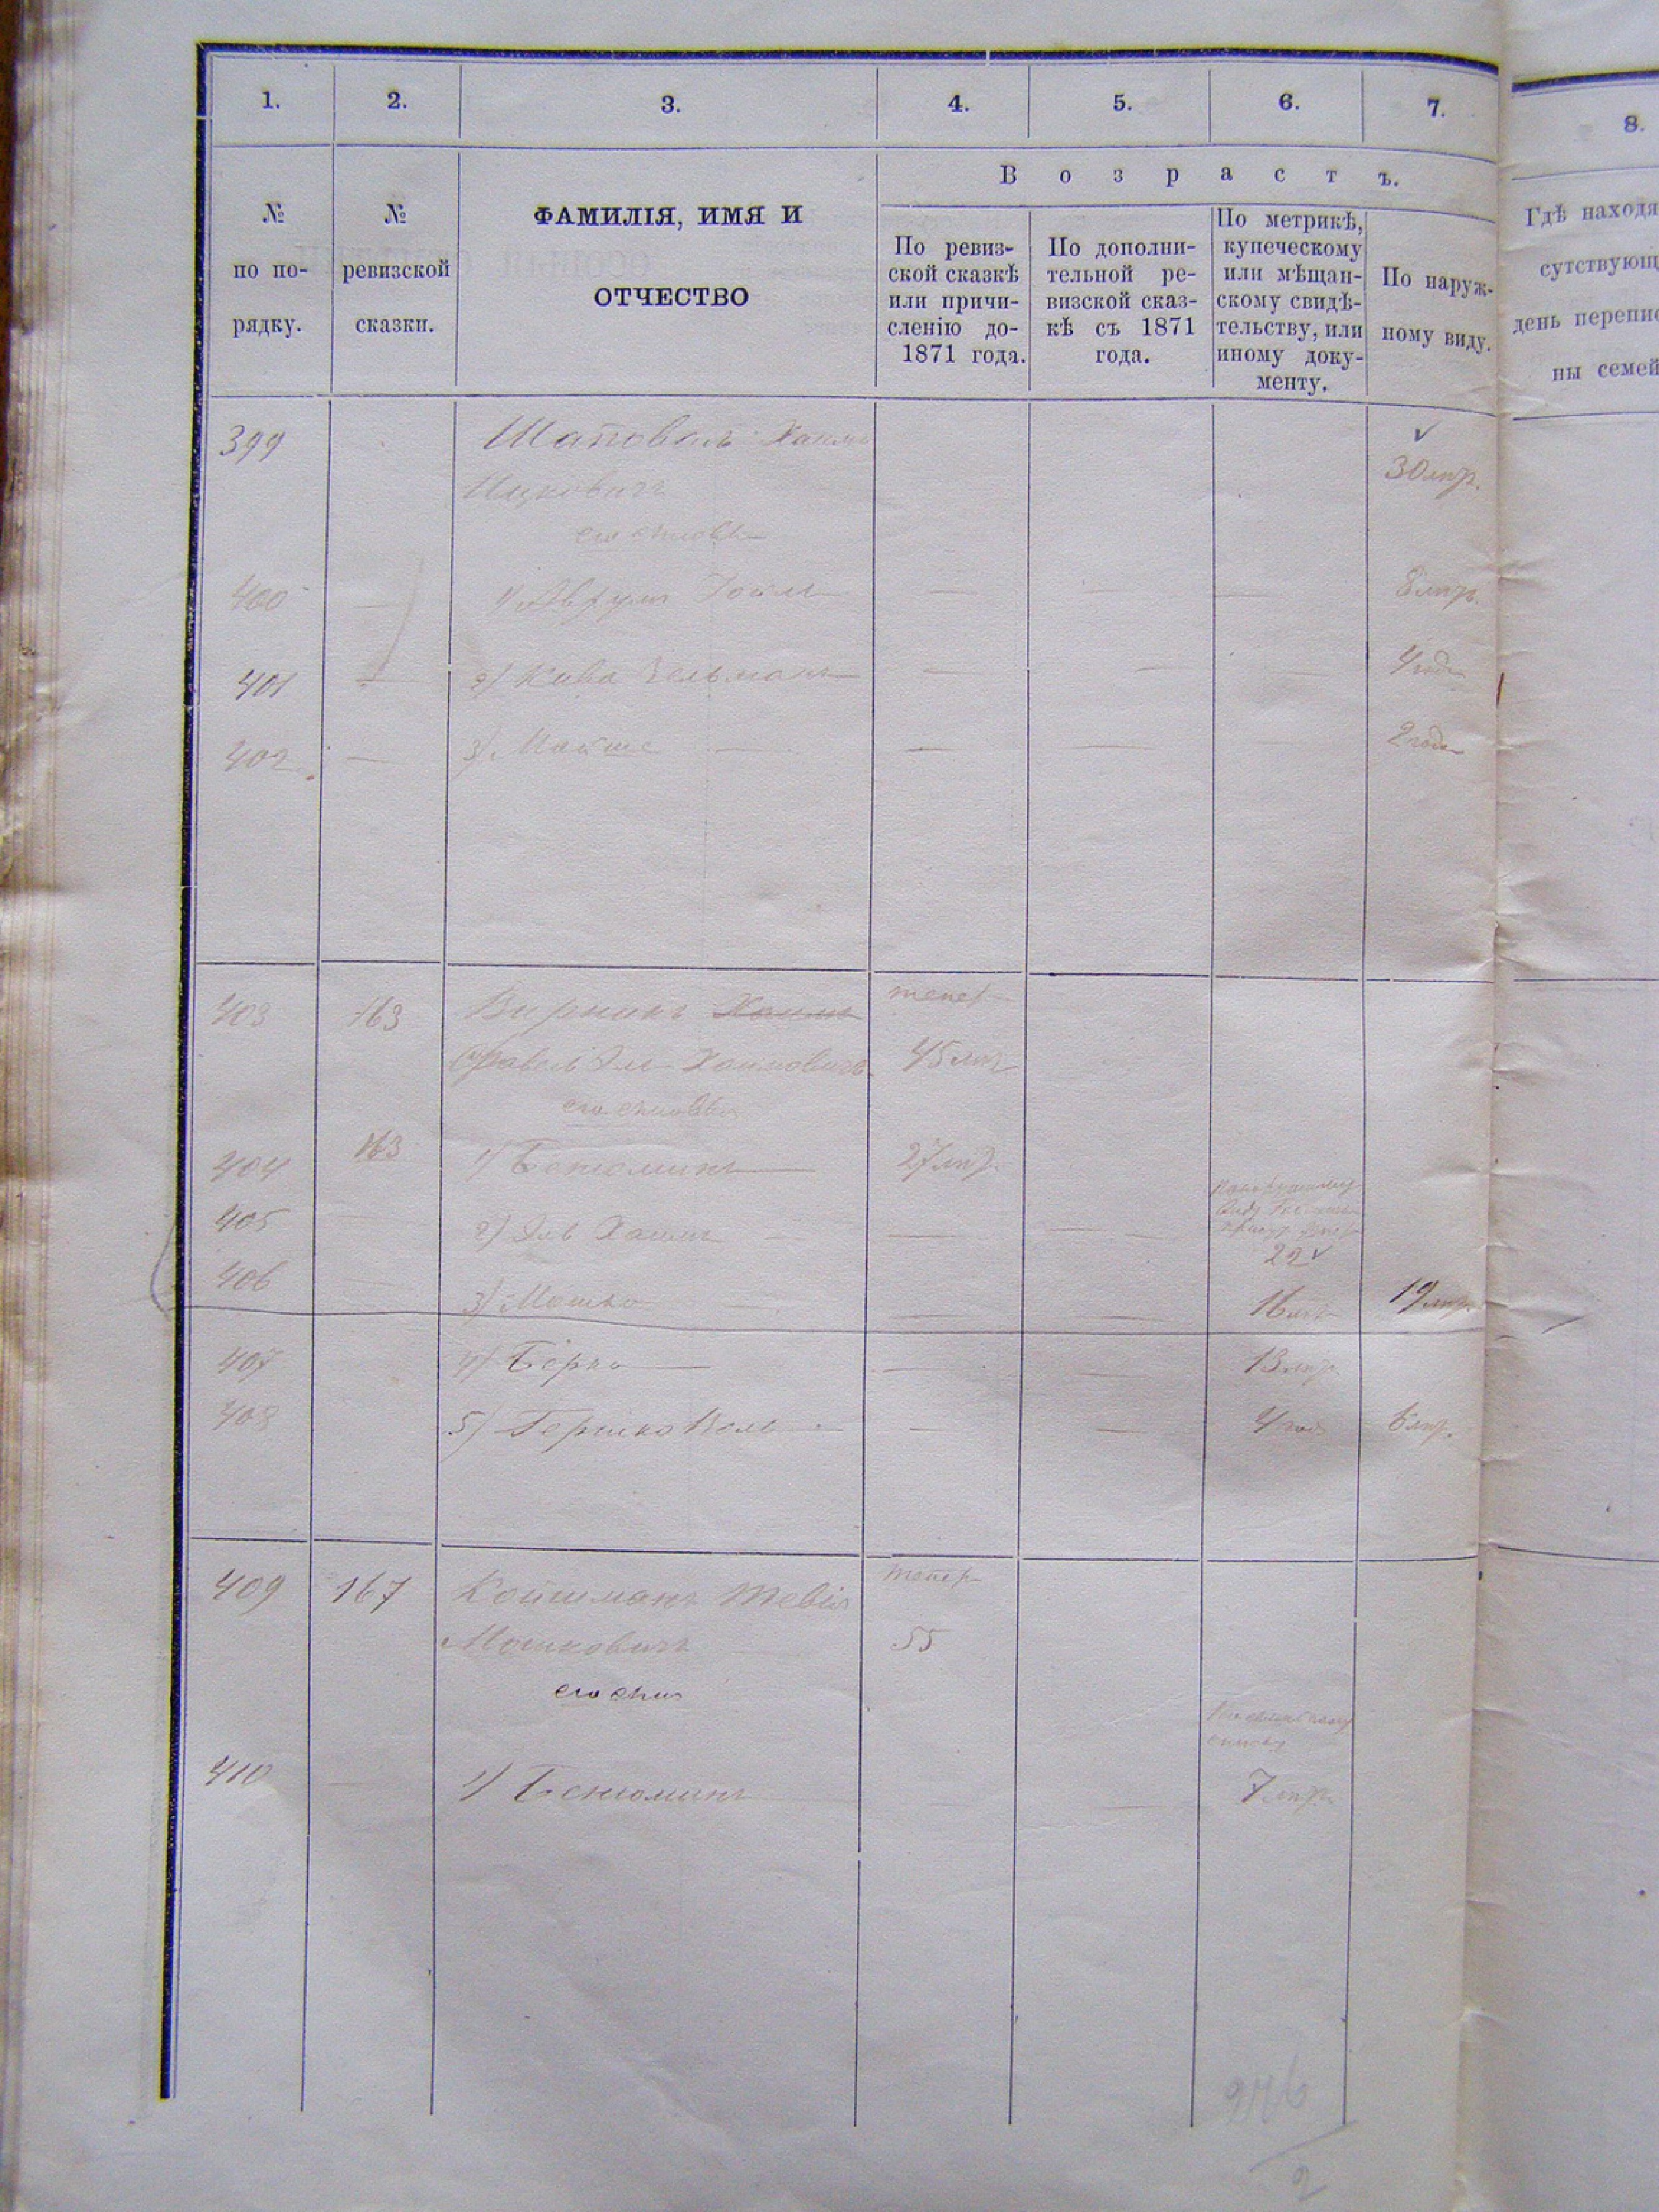 1. 2. 3. 4. 5. 6. 7.
8.
В о з р а с т ъ.
№ по по-рядку.
№ ревизской сказки.
ФАМИЛІЯ, ИМЯ И
ОТЧЕСТВО
По ревиз-
ской сказкѣ
или причи-
сленію до-
1871 года.
По дополни-
тельной ре-
визской сказ-
кѣ съ 1871
года.
По метрикѣ,
купеческому
или мѣщан-
скому свидѣ-
тельству, или
иному доку-
менту.
По наруж-
ному виду.
Гдѣ находя
сутствующ
день перепис
ны семей
399 Шаповалъ Хаимъ
Ицковичъ 30 лѣт.
его сыновья
400 1) Аврумъ 8 лѣт.
401 2) Кива Зельманъ 4 года
402 3) Мойше 2 года
403 163 Хаимъ
Эль Хаимовичъ 45 лѣт
его сыновья
404 163 1) Бенюминъ 27 лѣт.
405 2) Эль Хаимъ
22
406 3) Мошко 16 лѣт 19 лѣт.
407 4) Берко 13 лѣт.
408 5) Гершко 4 года 6 лѣт.
409 167 Койшманъ Тевія
Мошковичъ 55
его сынъ
410 1) Бенюминъ 7 лѣт.